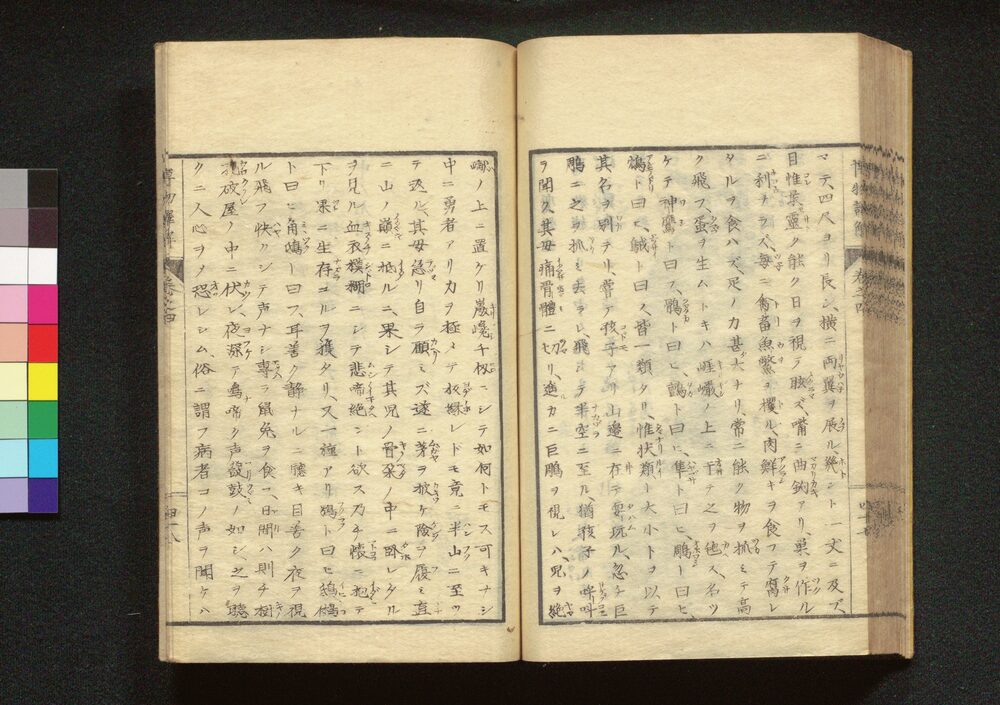 マテ、四尺ヨリ長シ、横ニ両翼ヲ展ル、幾ント一丈ニ及ブ、
目惟最霊ク能ク日ヲ視テ眩ズ、嘴ニ曲鈎アリ、巣ヲ作ル
ニ利ナラズ、毎ニ禽畜魚鱉ヲ攫ル、肉鮮キヲ食フテ腐レ
タルヲ食ハズ、足ノ力甚大ナリ、常ニ能ク物ヲ抓ミテ高
ク飛フ、蛋ヲ生ムトキハ崕巘ノ上ニ于テ之ヲ
ケテ神鷹ト曰フ、鶚ト曰ヒ、鷂ト曰ヒ、隼ト曰ヒ、鵰ト曰ヒ、
ト曰ヒ、ト曰フ、皆一類タリ、惟状類ト大小トヲ以テ
其名ヲ別テリ、曽ア孩子アリ山邉ニ在テ耍玩ル、忽チ巨
鵰ニ之ヲ抓ミ去ラレ、飛テ半空ニ至ル、猶孩子ノ呼叫
ヲ聞ク、其母痛骨體ニ切リ、遙カニ巨鵰ヲ視レハ、児ヲ絶
巘ノ上ニ置ケリ巌峻千仭ニシテ如何トモス可キナシ
中ニ勇者アリ力ヲ極メテ扳縁レドモ竟ニ半山ニ至ツ
テ返ル、其母急リ自ラ顧ミズ遂ニ茅ヲ披ケ險ヲ履ミ直
ニ山ノ巓ニ抵ル、ニ果シテ其児ノ骨朶ノ中ニ卧レタル
ヲ見ル血衣模糊ニシテ悲啼絶ント欲ス乃チ懐ニ抱テ
下リ果ニ生存コルヲ獲タリ、又一種アリ鵂ト曰ヒ鵂鶹
ト曰ヒ角鴟ト曰フ、耳善ク静ナルニ聴キ目善ク夜ヲ視
ル飛フ快クシテ声ナシ專ラ鼠兔ヲ食フ、日間ハ則チ樹
孔破屋ノ中ニ伏シ、夜深テ為啼ク声鼓ノ如シ、之ヲ聴
クニ人心ヲノ恐レシム、俗ニ謂フ病者コノ声ヲ聞ケハ